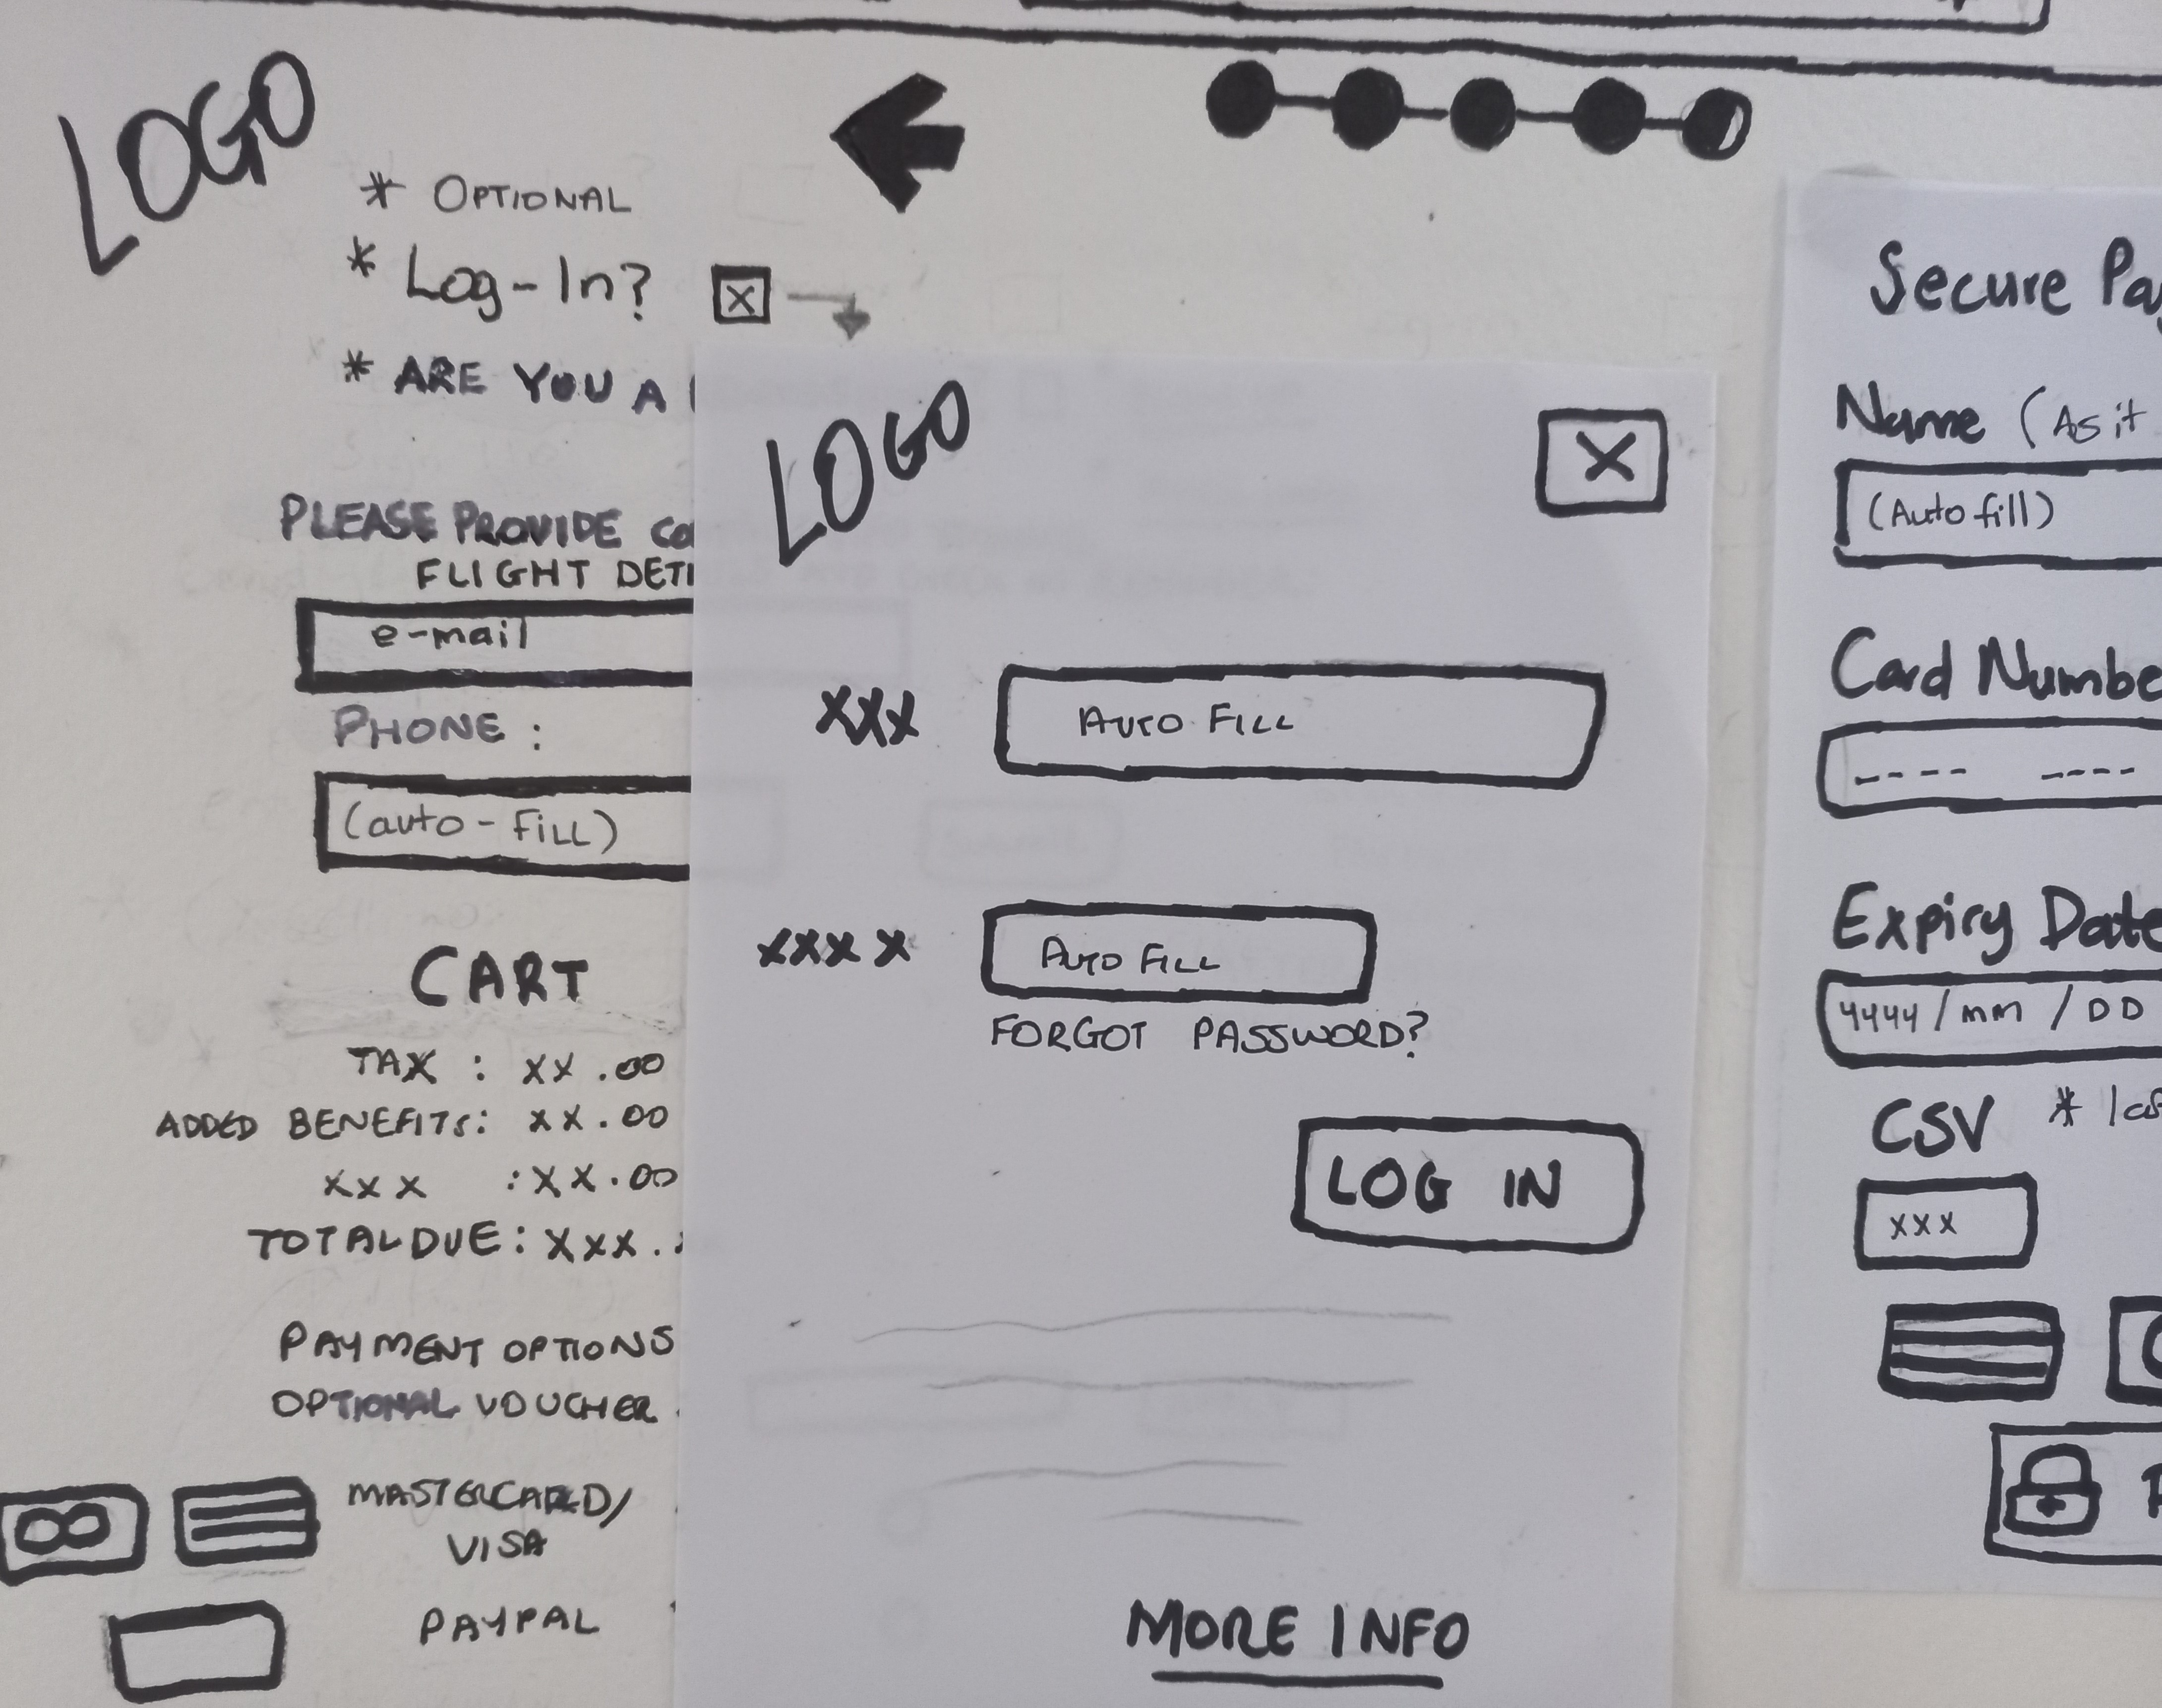 LOGO
* OPTIONAL
* Log-In? X
* ARE YOU A
PLEASE PROVIDE
FLIGHT
e-mail
PHONE :
(auto-FILL)
CART
TAX : XX.00
ADDED BENEFITS: XX.00
XXX :XX.00
TOTAL DUE: XXX.
PAYMENT OPTIONS
OPTIONAL VOUCHER
MASTERCARD/
VISA
PAYPAL
LOGO
X
XXX AUTO FILL
XXXX AUTO FILL
FORGOT PASSWORD?
LOG IN
MORE INFO
Secure
Name (As it
(Auto fill)
Card
---- ----
Expiry Date
YYYY/mm/DD
CSV *
xxx